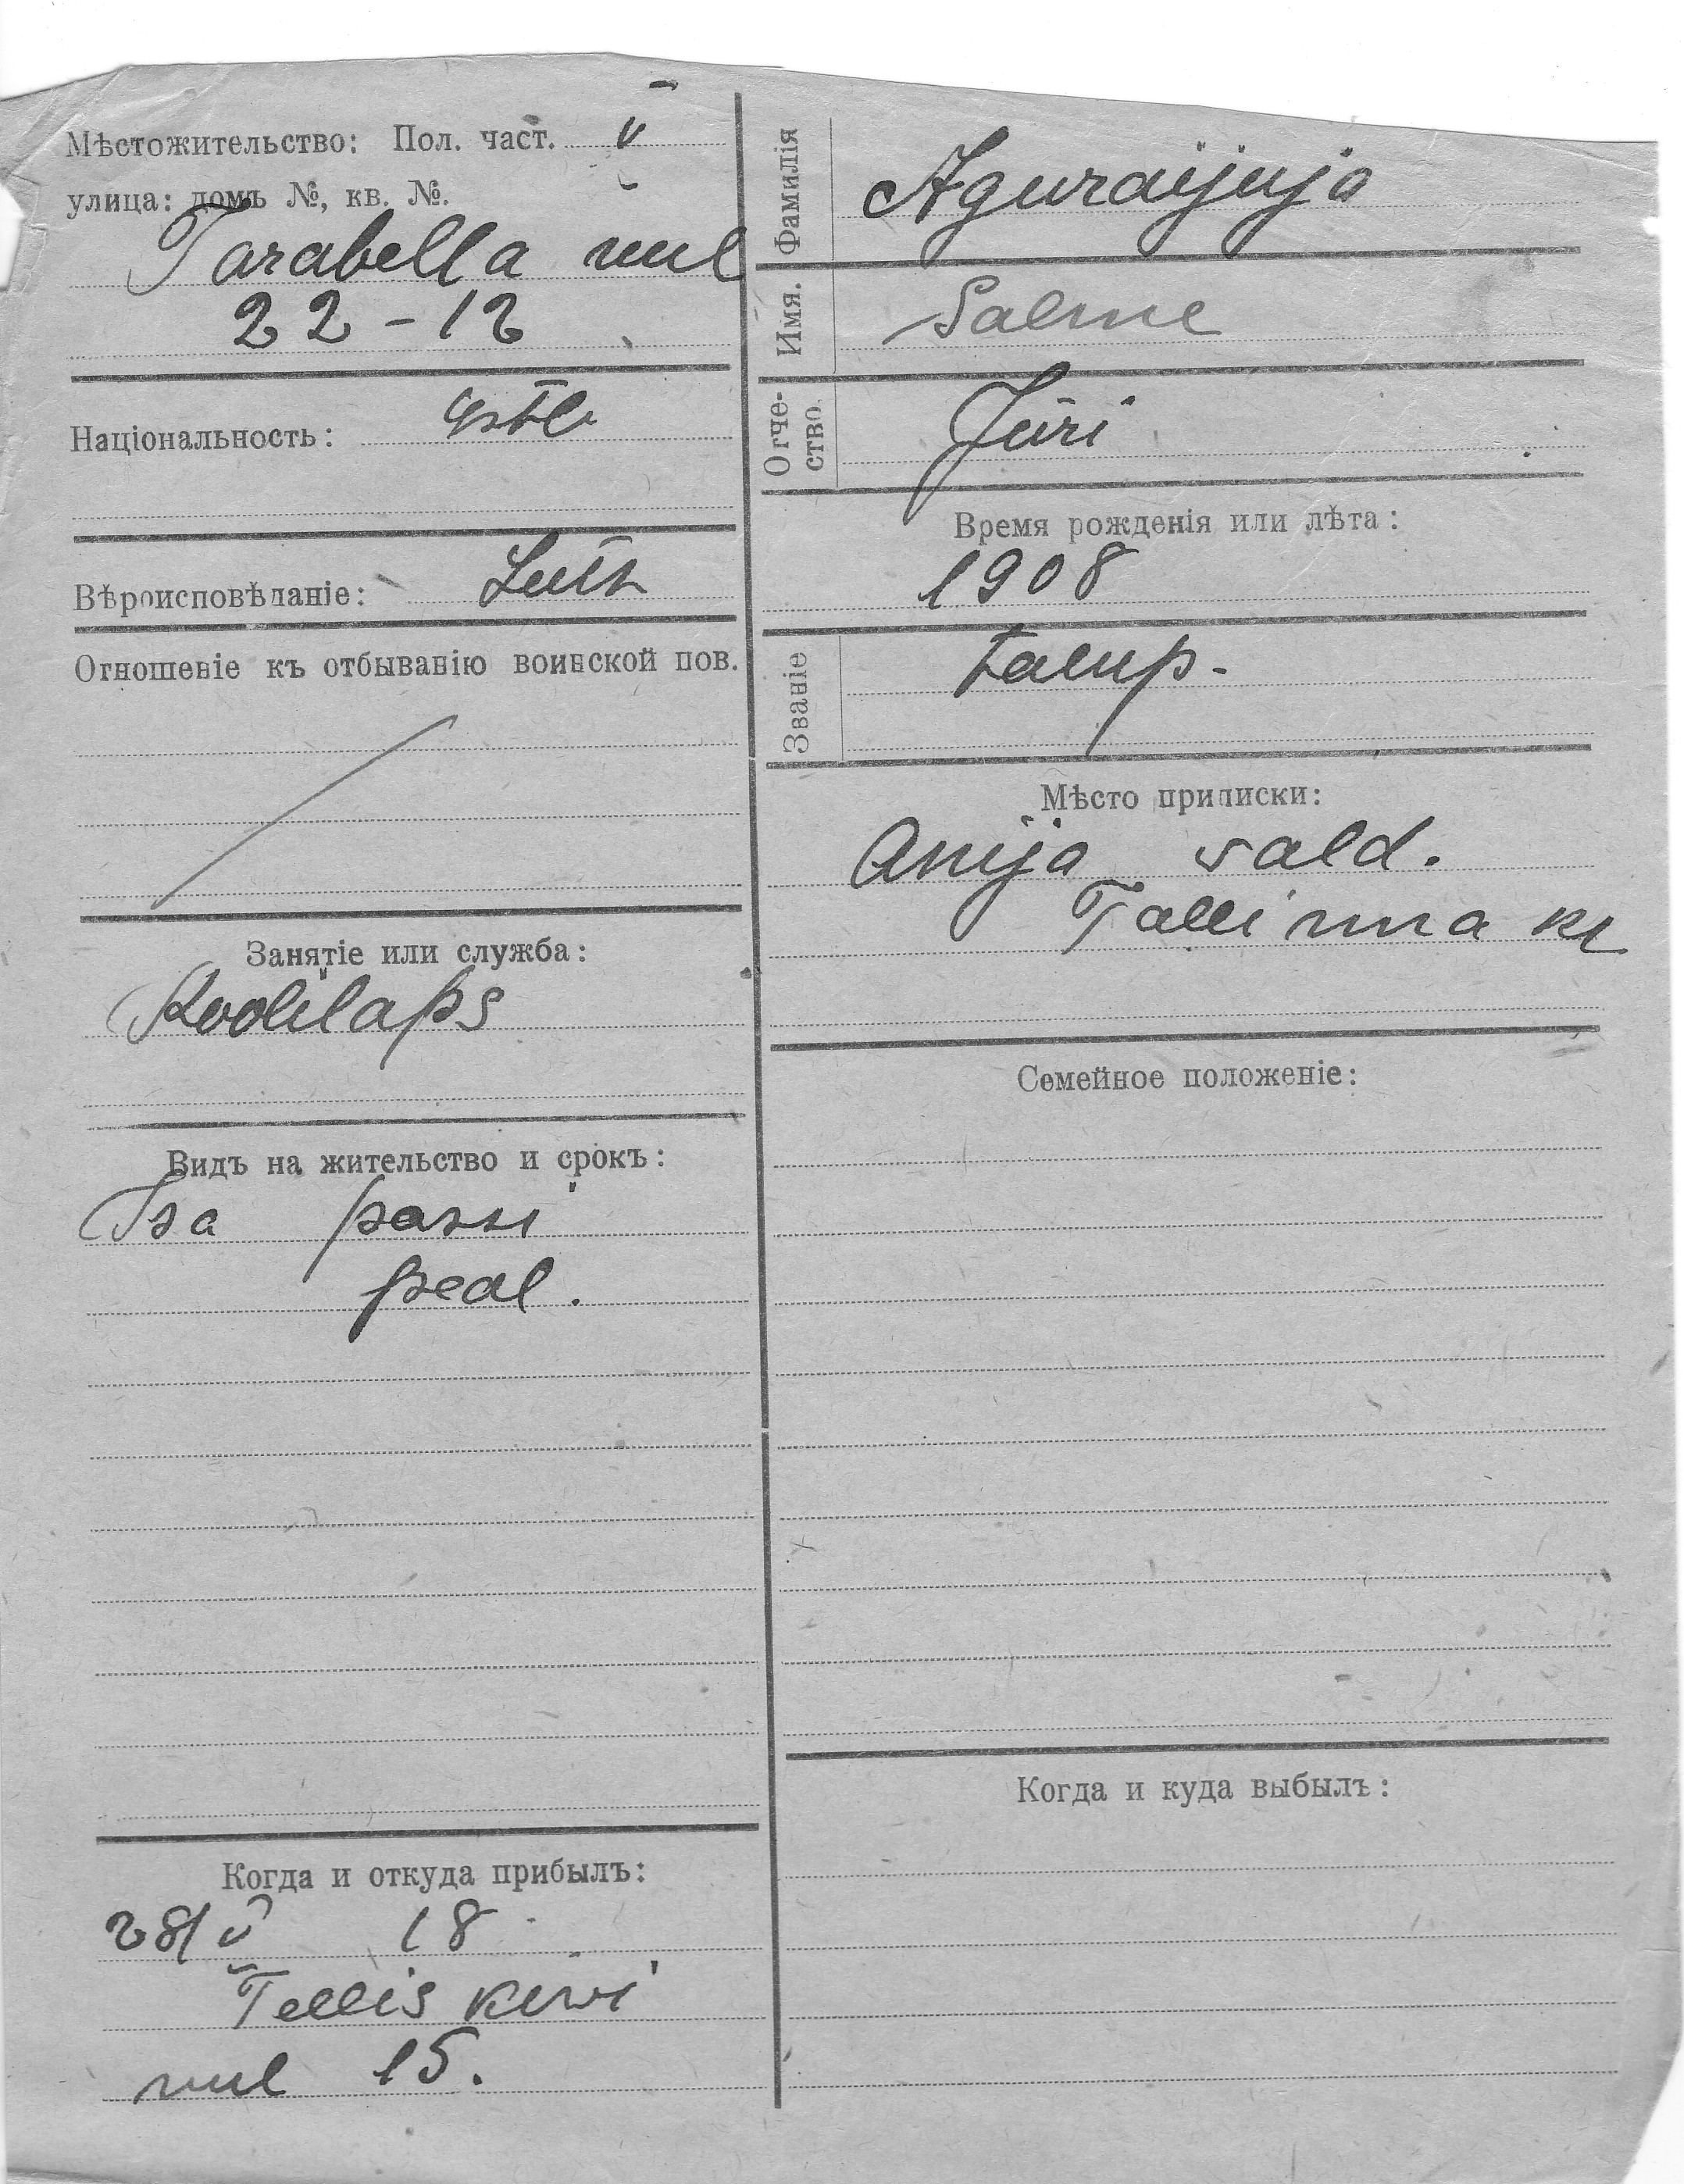 Мѣстожительство: Пол. част. V
улица: домъ №, кв. №.
Tarabella uul
22-12
Національность: Estl
Вѣроисповѣданіе: Luth
Отношеніе къ отбыванію воинской пов.
Занятіе или служба:
Koolilaps
Видъ на жительство и срокъ:
Isa passi
peal.
Когда и откуда прибылъ:
28/V 18
Telliskiwi
uul 15.
Фамилія Aguraijuja
Имя. Salme
Отчество. Jüri
Время рожденія или лѣта:
1908
Званіе talup.
Мѣсто приписки:
Anija vald.
Tallinna kr
Семейное положеніе:
Когда и куда выбылъ: